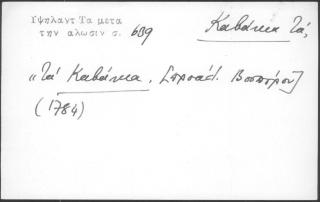 Υψηλαντ Τα μετα
την αλωσιν σ. 689
Καβάκια Τά,
"Τά Καβάκια. [Βοσπόρου]
(1784)